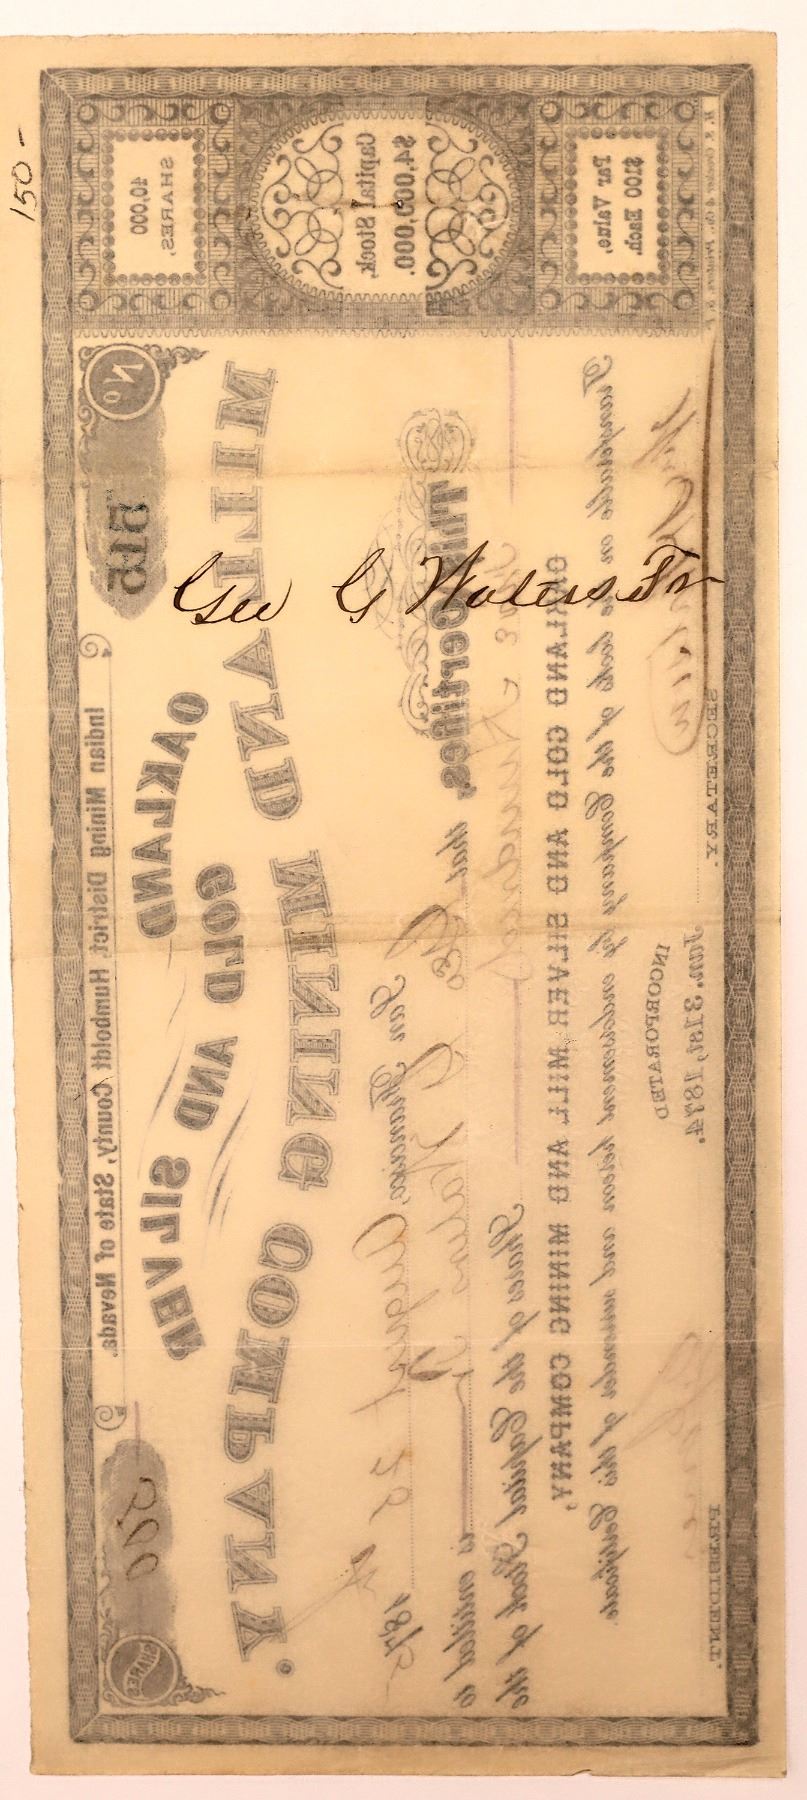 150 -
Geo G Waters Tr
No
515
Indian Mining District, Humboldt County, State of Nevada.
OAKLAND GOLD AND SILVER
MILL AND MINING COMPANY.
200
SHARES
SHARES,
40,000
$4,000,000.
Capital Stock,
$100 Each.
Par Value,
San Francisco, August 25 1875
This Certifies, that Geo G Waters Tr is entitled to
Two Hundred Shares of the Capital Stock of the
OAKLAND GOLD AND SILVER MILL AND MINING COMPANY,
Transferable on the books of the Company by endorsement hereon and surrender of this Certificate.
INCORPORATED
Jan. 31st, 1874.
SECRETARY.
PRESIDENT.